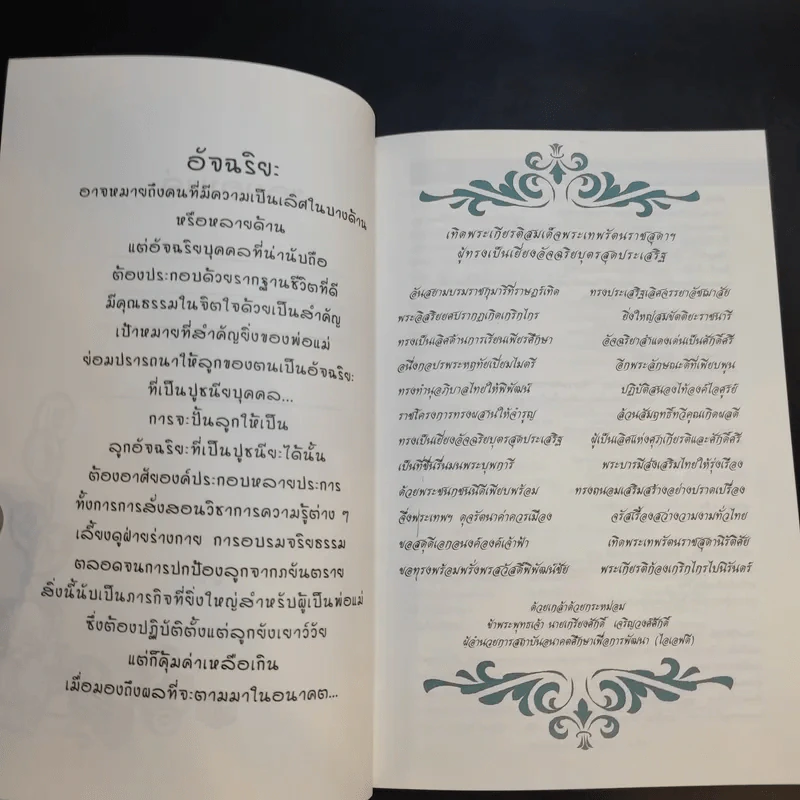 อัจฉริยะ
อาจหมายถึงคนที่มีความเป็นเลิศในบางด้าน
หรือหลายด้าน
แต่อัจฉริยบุคคลที่น่านับถือ
ต้องประกอบด้วยรากฐานชีวิตที่ดี
มีคุณธรรมในจิตใจด้วยเป็นสำคัญ
เป้าหมายที่สำคัญยิ่งของพ่อแม่
ย่อมปรารถนาให้ลูกของตนเป็นอัจฉริยะ
ที่เป็นปูชนียบุคคล...
การจะปั้นลูกให้เป็น
ลูกอัจฉริยะที่เป็นปูชนียะได้นั้น
ต้องอาศัยองค์ประกอบหลายประการ
ทั้งการการสั่งสอนวิชาการความรู้ต่าง ๆ
เลี้ยงดูฝ่ายร่างกาย การอบรมจริยธรรม
ตลอดจนการปกป้องลูกจากภยันตราย
สิ่งนี้นับเป็นภารกิจที่ยิ่งใหญ่สำหรับผู้เป็นพ่อแม่
ซึ่งต้องปฏิบัติตั้งแต่ลูกยังเยาว์วัย
แต่ก็คุ้มค่าเหลือเกิน
เมื่อมองถึงผลที่จะตามมาในอนาคต...
เทิดพระเกียรติสมเด็จพระเทพรัตนราชสุดาฯ
ผู้ทรงเป็นเยี่ยงอัจฉริยบุตรสุดประเสริฐ
อันสยามบรมราชกุมารีที่ราษฎร์เทิด ทรงประเสริฐเลิศจรรยาอัชฌาสัย
พระอิสริยยศปรากฏเกิดเกริกไกร ยิ่งใหญ่สมขัตติยะราชนารี
ทรงเป็นเลิศด้านการเรียนเพียรศึกษา อัจฉริยาสำแดงเด่นเป็นศักดิ์ศรี
อนึ่งกอปรพระหฤทัยเปี่ยมไมตรี อีกพระลักษณะดีที่เพียบพูน
ทรงทำนุอภิบาลไทยให้พิพัฒน์ ปฏิบัติสนองไท้องค์ไอศูรย์
ราชโครงการทรงผสานให้จำรูญ ล้วนสัมฤทธิ์ทวีคูณเกิดผลดี
ทรงเป็นเยี่ยงอัจฉริยบุตรสุดประเสริฐ ผู้เป็นเลิศแห่งศุภเกียรติและศักดิ์ศรี
เป็นที่ชื่นรื่นมนพระบุพการี พระบารมีส่งเสริมไทยให้รุ่งเรือง
ด้วยพระชนกชนนีดีเพียบพร้อม ทรงถนอมเสริมสร้างอย่างปราดเปรื่อง
จึ่งพระเทพฯ ดุจรัตนาค่าควรเมือง จรัสเรื้องสว่างวามงามทั่วไทย
ขอสดุดีเอกอนงค์องค์เจ้าฟ้า เทิดพระเทพรัตนราชสุดานิรัติสัย
ขอทรงพร้อมพรั่งพรสวัสดิ์พิพัฒน์ชัย พระเกียรติก้องเกริกไกรไปนิรันดร์
ด้วยเกล้าด้วยกระหม่อม
ข้าพระพุทธเจ้า นายเกรียงศักดิ์ เจริญวงศ์ศักดิ์
ผู้อำนวยการสถาบันอนาคตศึกษาเพื่อการพัฒนา (ไอเอฟดี)